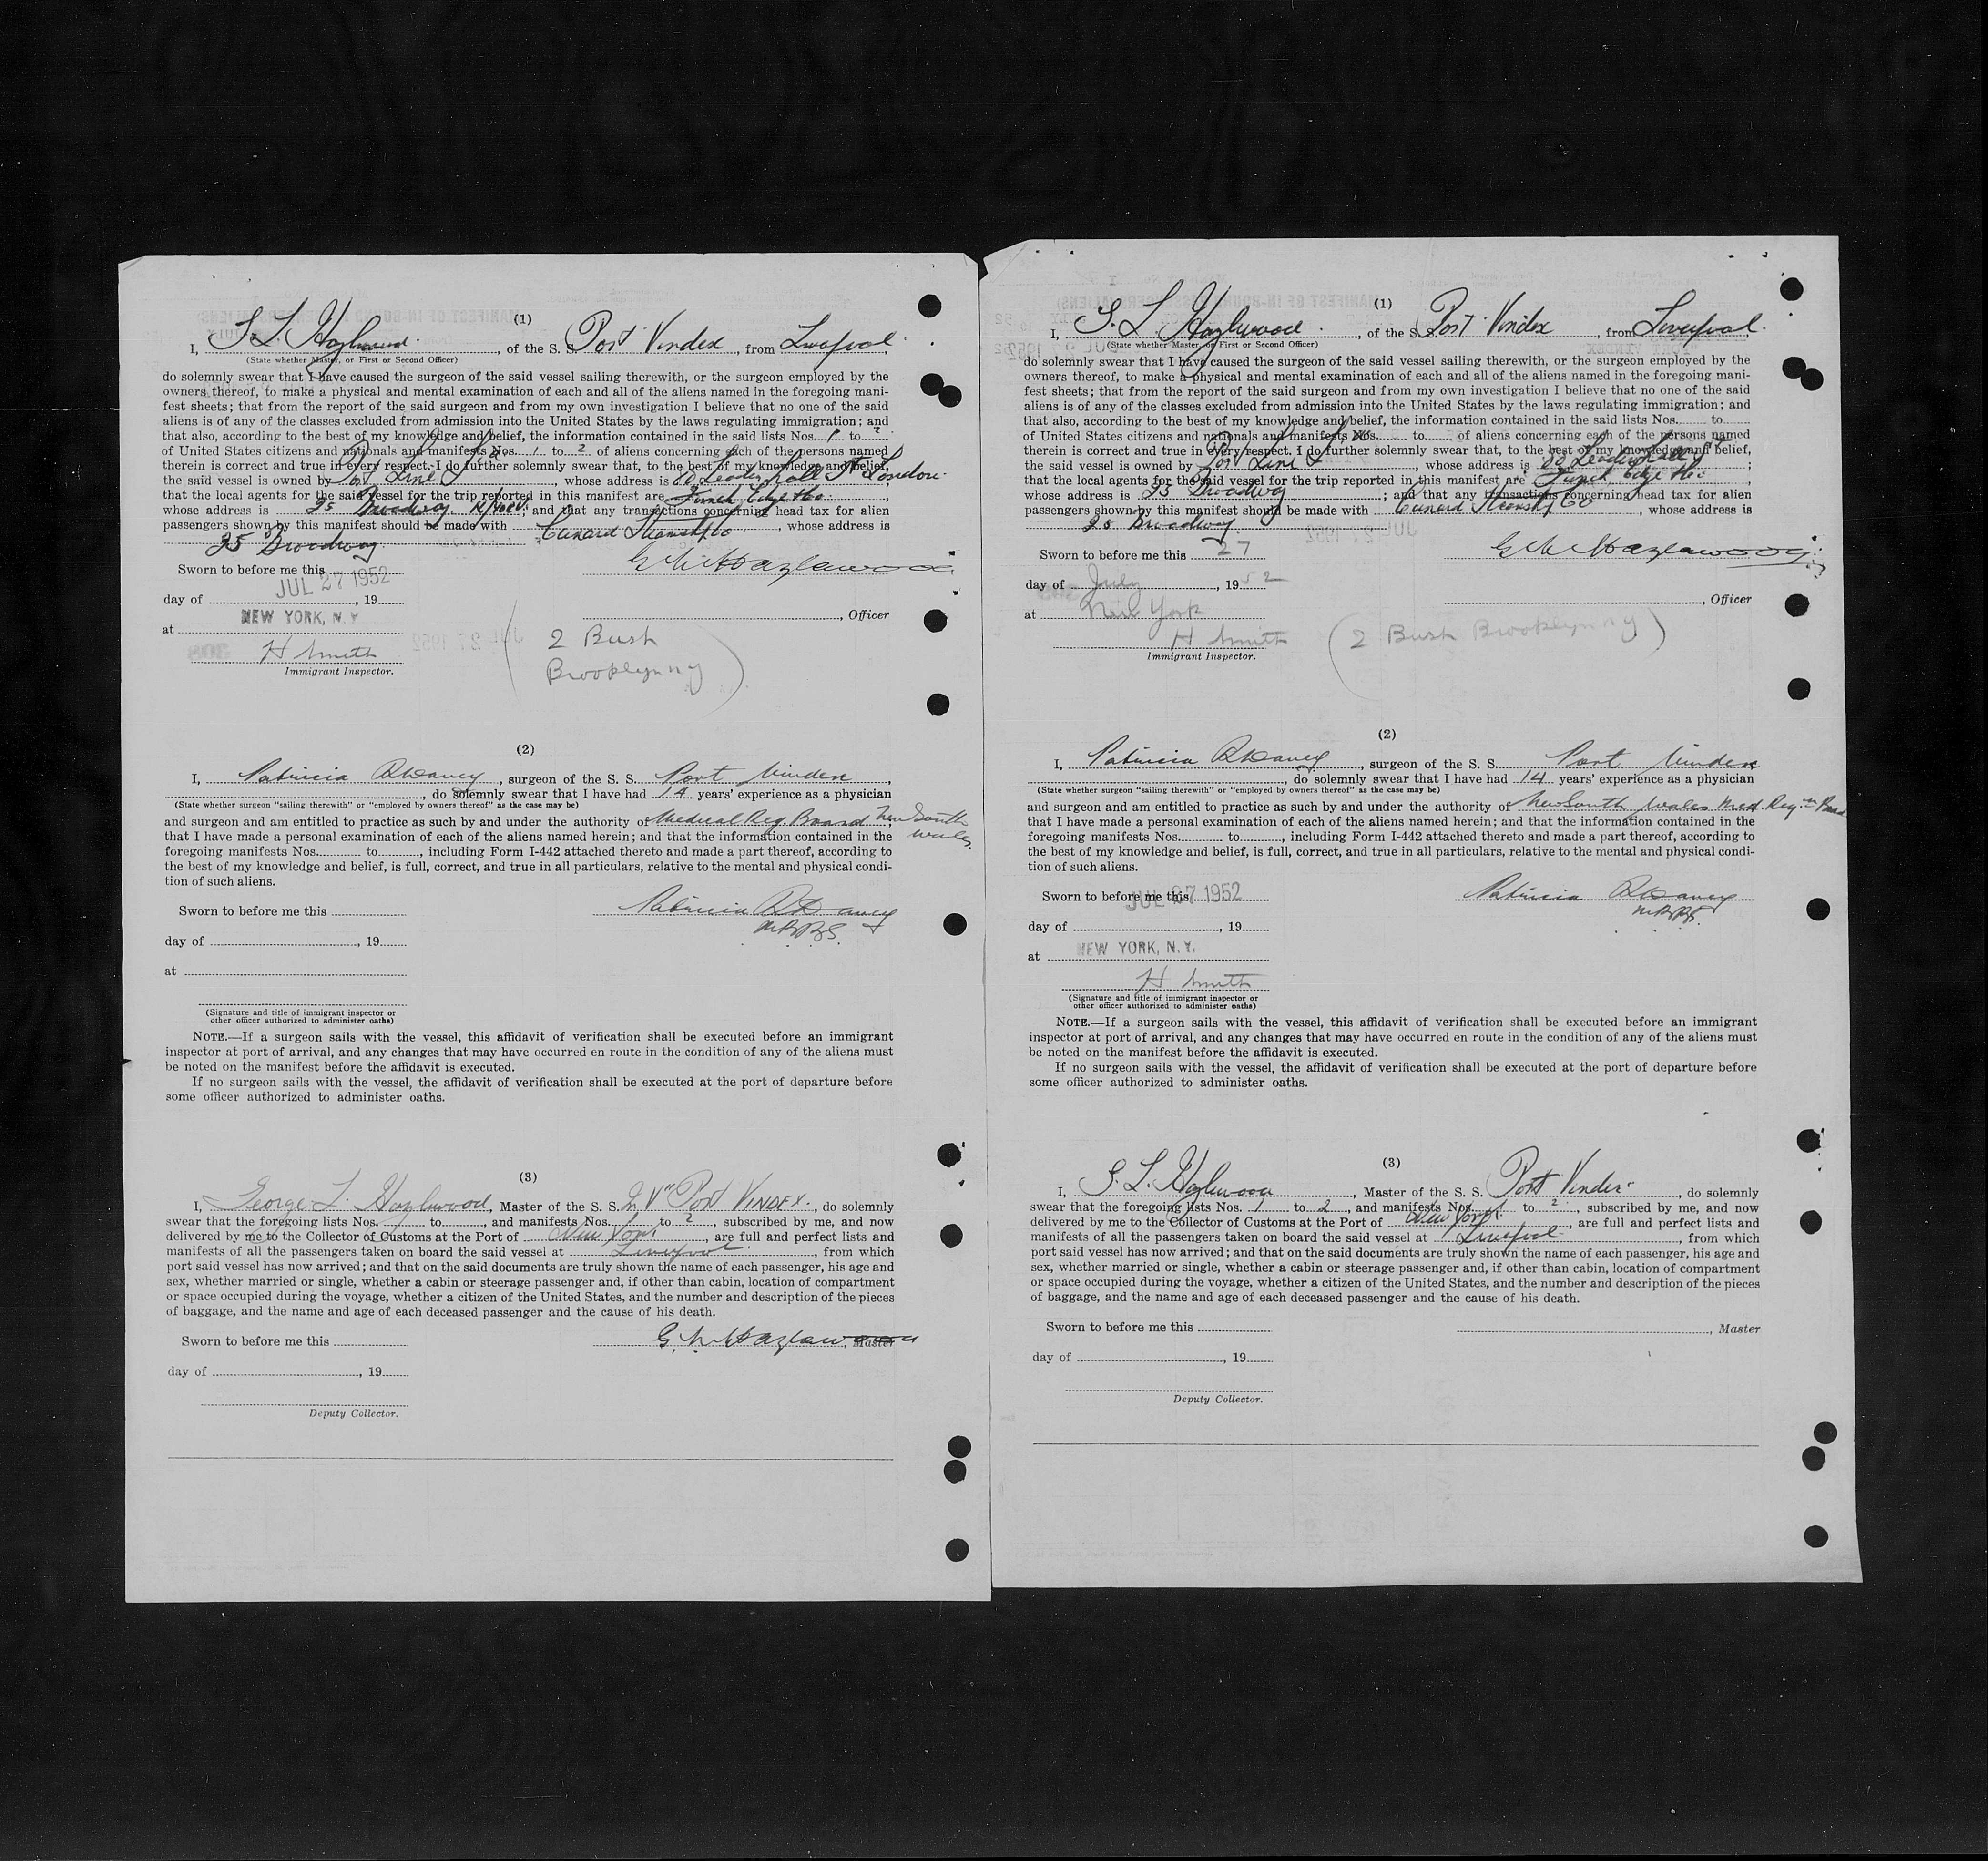 (1)
I, G. L. Hazlewood, of the S. S. Port Vindex, from Liverpool
(State whether Master, or First or Second Officer)
do solemnly swear that I have caused the surgeon of the said vessel sailing therewith, or the surgeon employed by the
owners thereof, to make a physical and mental examination of each and all of the aliens named in the foregoing mani-
fest sheets; that from the report of the said surgeon and from my own investigation I believe that no one of the said
aliens is of any of the classes excluded from admission into the United States by the laws regulating immigration; and
that also, according to the best of my knowledge and belief, the information contained in the said lists Nos. 1 to 2
of United States citizens and nationals and manifests Nos. 1 to 2 of aliens concerning each of the persons named
therein is correct and true in every respect. I do further solemnly swear that, to the best of my knowledge and belief,
the said vessel is owned by Port Line Ltd, whose address is Leadenhall St London
that the local agents for the said vessel for the trip reported in this manifest are Funch Edye & Co.,
whose address is 25 Broadway. N/York; and that any transactions concerning head tax for alien
passengers shown by this manifest should be made with Cunard Steamship Co, whose address is
25 Broadway.
Sworn to before me this G L Hazlewood
JUL 27 1952
day of , 19
, Officer
NEW YORK, N.Y.
at
(2 Bush
Brooklyn ny)
H Smith
Immigrant Inspector.
(2)
I, Patricia Davey, surgeon of the S. S. Port Vindex,
, do solemnly swear that I have had 14 years' experience as a physician
(State whether surgeon "sailing therewith" or "employed by owners thereof" as the case may be)
and surgeon and am entitled to practice as such by and under the authority of Medical Reg. Board New South Wales;
that I have made a personal examination of each of the aliens named herein; and that the information contained in the
foregoing manifests Nos. to , including Form I-442 attached thereto and made a part thereof, according to
the best of my knowledge and belief, is full, correct, and true in all particulars, relative to the mental and physical condi-
tion of such aliens.
Sworn to before me this Patricia Davey
M.B.B.S.
day of , 19
at
(Signature and title of immigrant inspector or
other officer authorized to administer oaths)
NOTE.—If a surgeon sails with the vessel, this affidavit of verification shall be executed before an immigrant
inspector at port of arrival, and any changes that may have occurred en route in the condition of any of the aliens must
be noted on the manifest before the affidavit is executed.
If no surgeon sails with the vessel, the affidavit of verification shall be executed at the port of departure before
some officer authorized to administer oaths.
(3)
I, George L. Hazlewood, Master of the S. S. M.V. "Port VINDEX", do solemnly
swear that the foregoing lists Nos. to , and manifests Nos. to 2, subscribed by me, and now
delivered by me to the Collector of Customs at the Port of New York, are full and perfect lists and
manifests of all the passengers taken on board the said vessel at Liverpool, from which
port said vessel has now arrived; and that on the said documents are truly shown the name of each passenger, his age and
sex, whether married or single, whether a cabin or steerage passenger and, if other than cabin, location of compartment
or space occupied during the voyage, whether a citizen of the United States, and the number and description of the pieces
of baggage, and the name and age of each deceased passenger and the cause of his death.
Sworn to before me this G. L. Hazlewood, Master
day of , 19
Deputy Collector.
(1)
I, G. L. Hazlewood, of the S. S. Port Vindex, from Liverpool.
(State whether Master, or First or Second Officer)
do solemnly swear that I have caused the surgeon of the said vessel sailing therewith, or the surgeon employed by the
owners thereof, to make a physical and mental examination of each and all of the aliens named in the foregoing mani-
fest sheets; that from the report of the said surgeon and from my own investigation I believe that no one of the said
aliens is of any of the classes excluded from admission into the United States by the laws regulating immigration; and
that also, according to the best of my knowledge and belief, the information contained in the said lists Nos. to
of United States citizens and nationals and manifests Nos. to of aliens concerning each of the persons named
therein is correct and true in every respect. I do further solemnly swear that, to the best of my knowledge and belief,
the said vessel is owned by Port Line Ltd, whose address is Leadenhall St;
that the local agents for the said vessel for the trip reported in this manifest are Funch, Edye & Co,
whose address is 25 Broadway; and that any transactions concerning head tax for alien
passengers shown by this manifest should be made with Cunard Steamship Co, whose address is
25 Broadway.
Sworn to before me this 27 G L Hazlewood
day of July, 1952
, Officer
at New York
H Smith (2 Bush Brooklyn ny)
Immigrant Inspector.
(2)
I, Patricia Davey, surgeon of the S. S. Port Vindex
, do solemnly swear that I have had 14 years' experience as a physician
(State whether surgeon "sailing therewith" or "employed by owners thereof" as the case may be)
and surgeon and am entitled to practice as such by and under the authority of New South Wales Med. Reg. Board
that I have made a personal examination of each of the aliens named herein; and that the information contained in the
foregoing manifests Nos. to , including Form I-442 attached thereto and made a part thereof, according to
the best of my knowledge and belief, is full, correct, and true in all particulars, relative to the mental and physical condi-
tion of such aliens.
Sworn to before me this JUL 27 1952 Patricia Davey
M.B.B.S.
day of , 19
at NEW YORK, N.Y.
H Smith
(Signature and title of immigrant inspector or
other officer authorized to administer oaths)
NOTE.—If a surgeon sails with the vessel, this affidavit of verification shall be executed before an immigrant
inspector at port of arrival, and any changes that may have occurred en route in the condition of any of the aliens must
be noted on the manifest before the affidavit is executed.
If no surgeon sails with the vessel, the affidavit of verification shall be executed at the port of departure before
some officer authorized to administer oaths.
(3)
I, G. L. Hazlewood, Master of the S. S. Port Vindex, do solemnly
swear that the foregoing lists Nos. 1 to 2, and manifests Nos. 1 to 2, subscribed by me, and now
delivered by me to the Collector of Customs at the Port of New York, are full and perfect lists and
manifests of all the passengers taken on board the said vessel at Liverpool, from which
port said vessel has now arrived; and that on the said documents are truly shown the name of each passenger, his age and
sex, whether married or single, whether a cabin or steerage passenger and, if other than cabin, location of compartment
or space occupied during the voyage, whether a citizen of the United States, and the number and description of the pieces
of baggage, and the name and age of each deceased passenger and the cause of his death.
Sworn to before me this , Master
day of , 19
Deputy Collector.